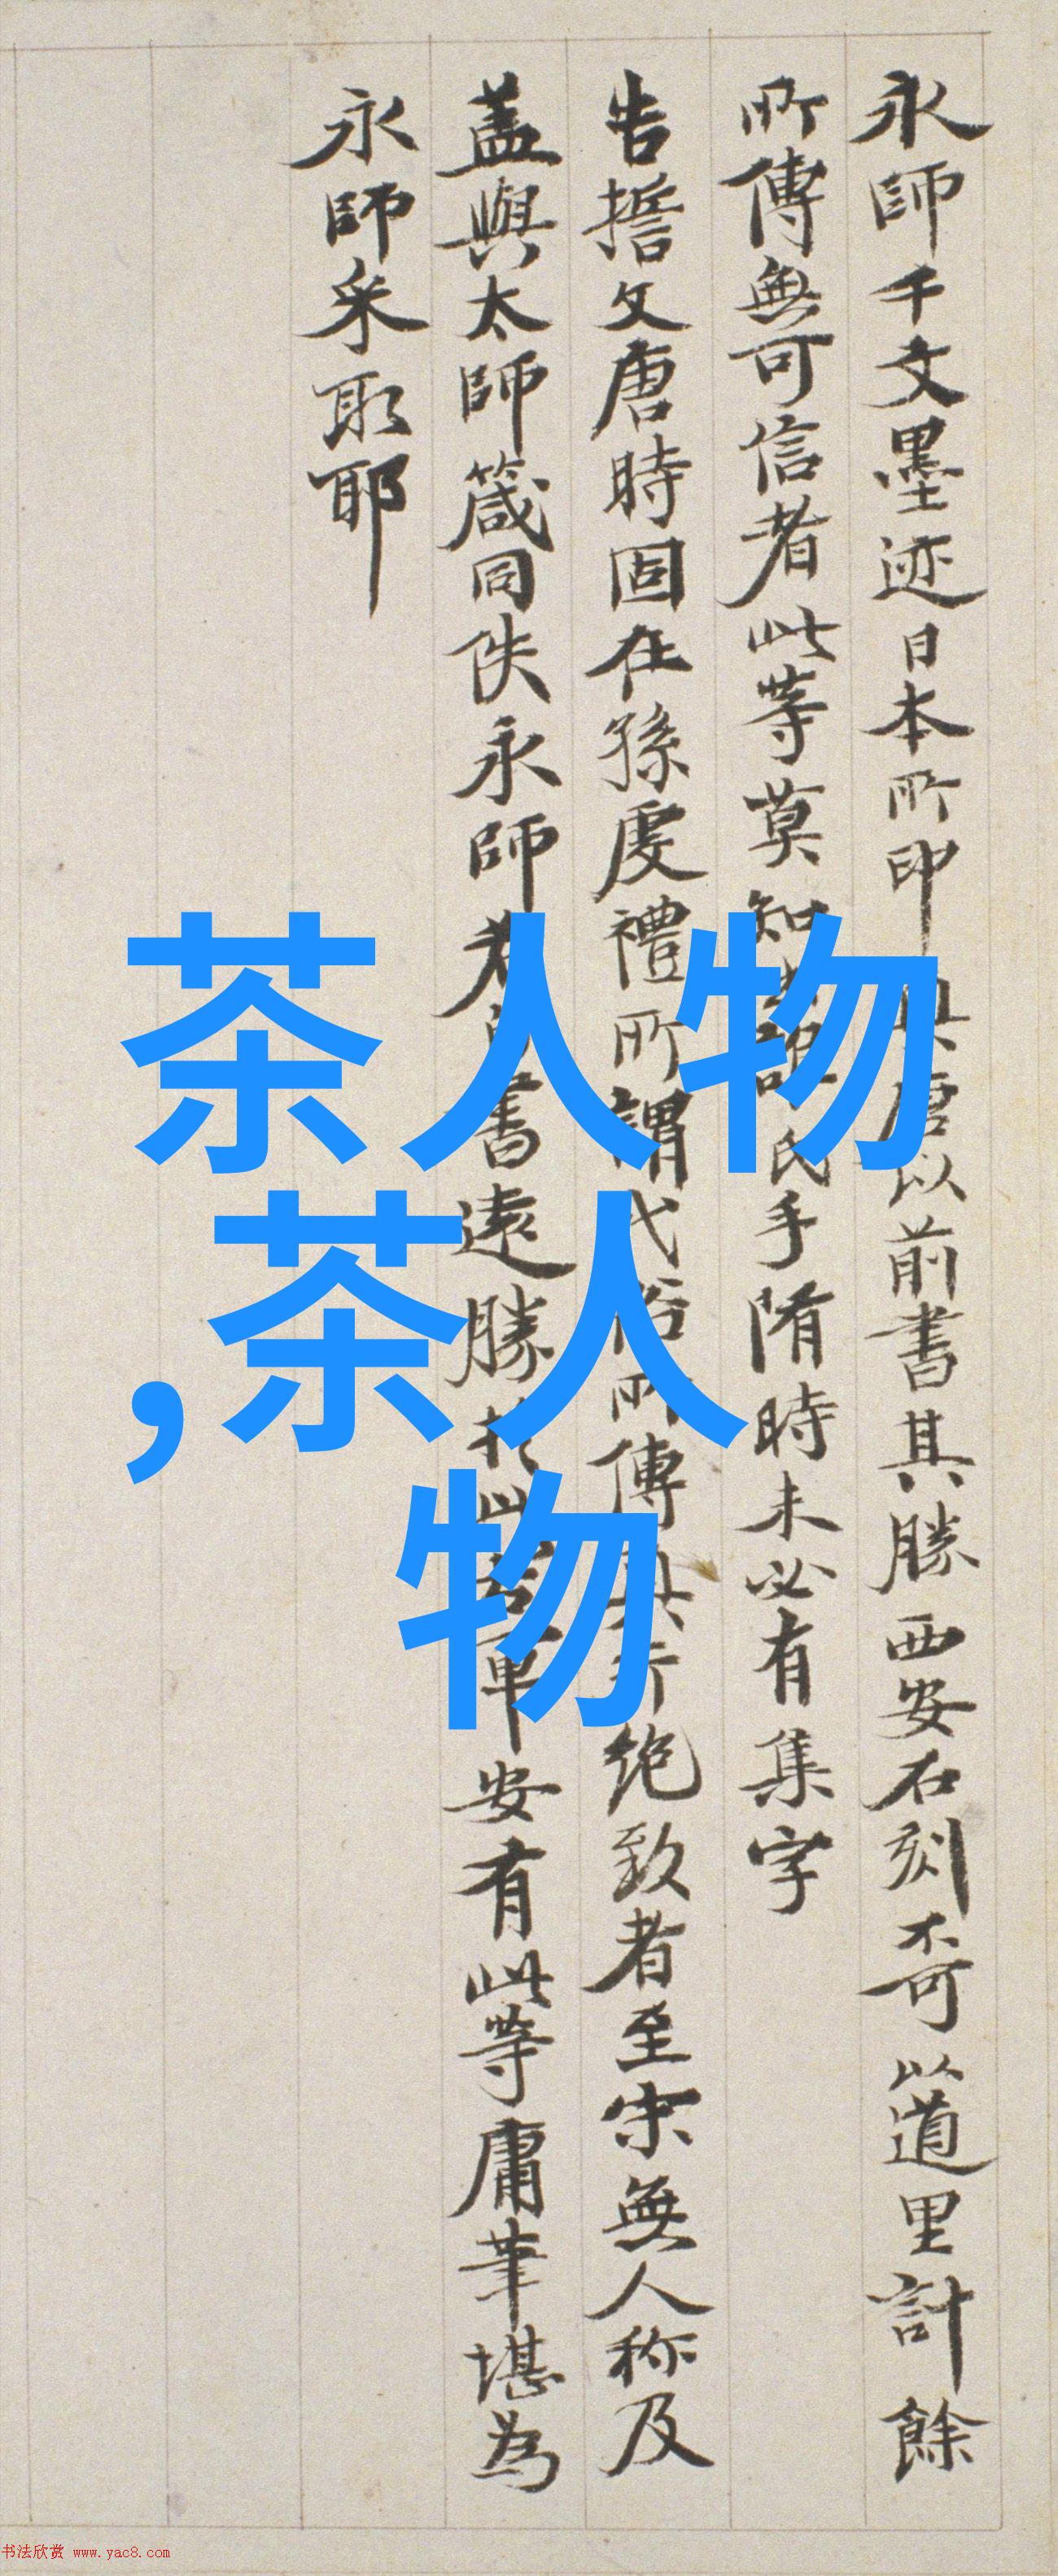 永師千文墨迹日本所印唐以前書其勝西安石刻不可以道里計餘
所傳無可信者此等莫知誰氏手隋時未必有集字
告誓文唐時固在孫虔禮所謂代俗所傳真行絶致者至宋無人称及
蓋與太師箴同佚永師書遠勝於此右軍安有此等庸筆堪為
永師采取耶
茶人物
,茶人
物
书法欣赏 www.yac8.com